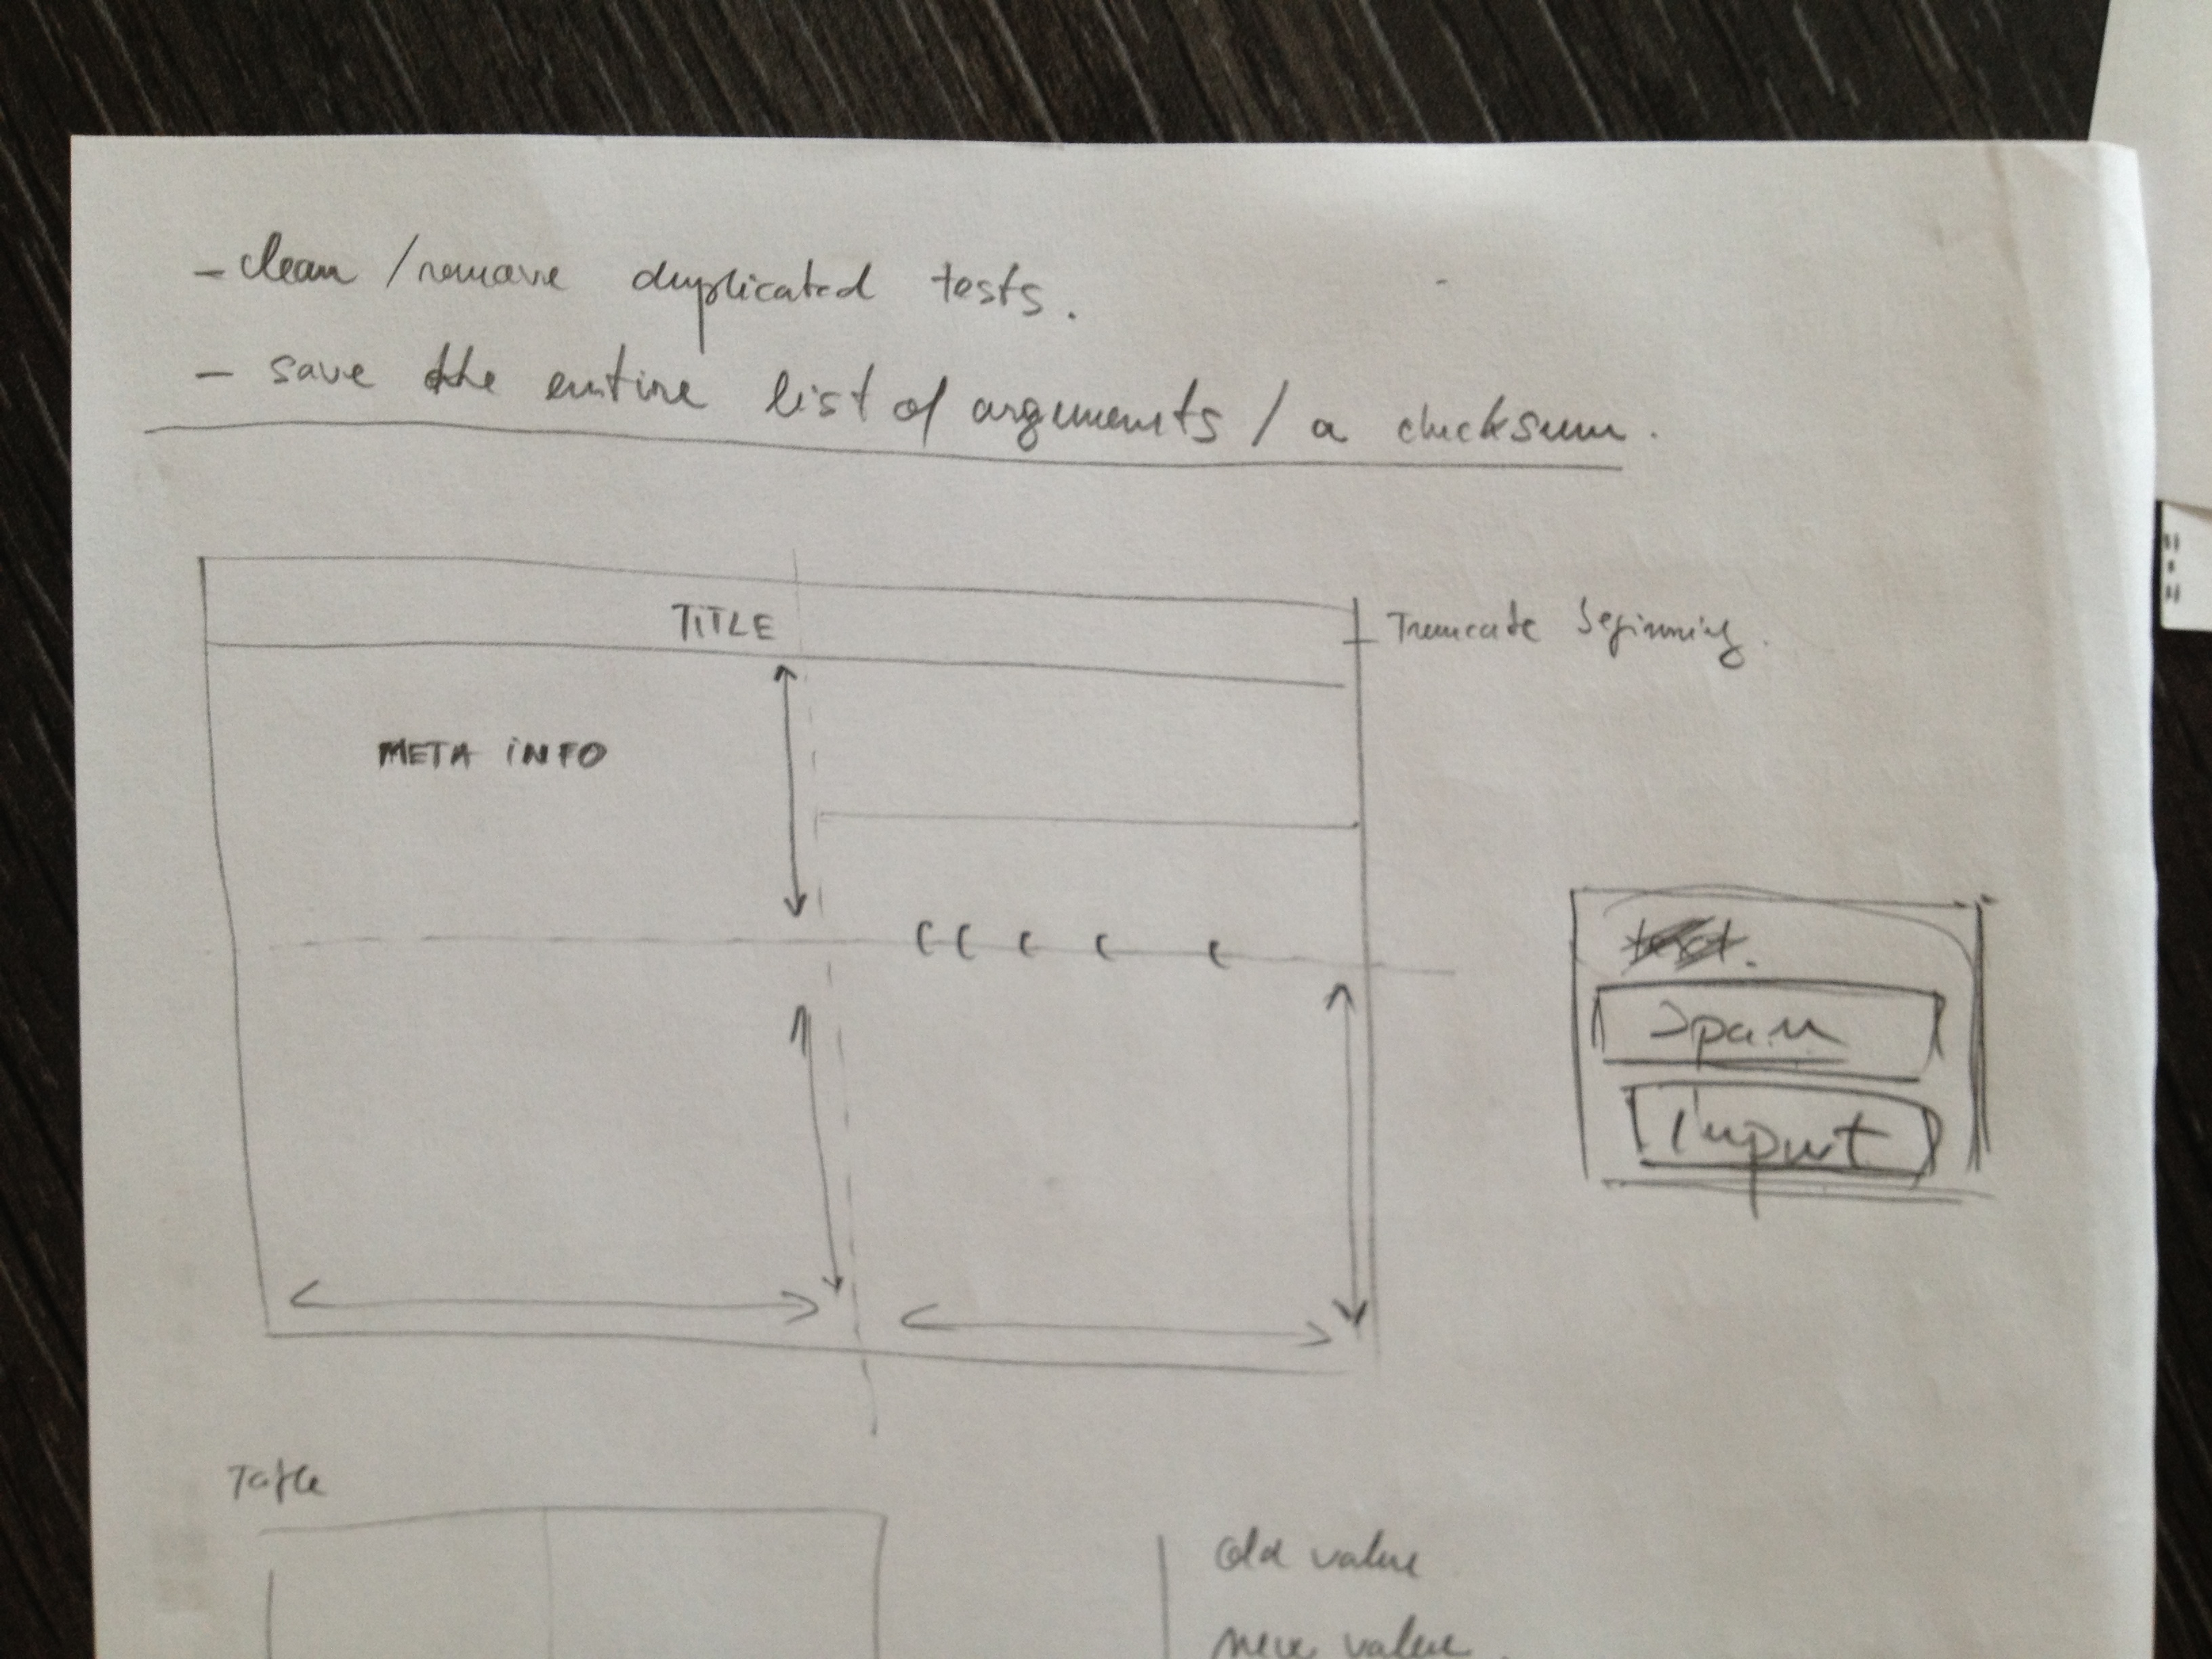 - clean / remove duplicated tests.
- save the entire list of arguments / a checksum.
TITLE
Truncate beginning.
META INFO
Span
input
Table
old value
new value